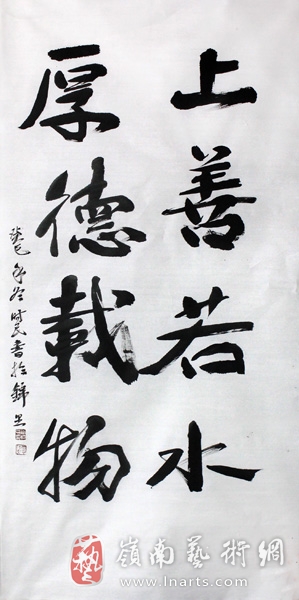 上善若水
厚德載物
癸巳年冬
書於
藝 嶺南藝術網
www.lnarts.com